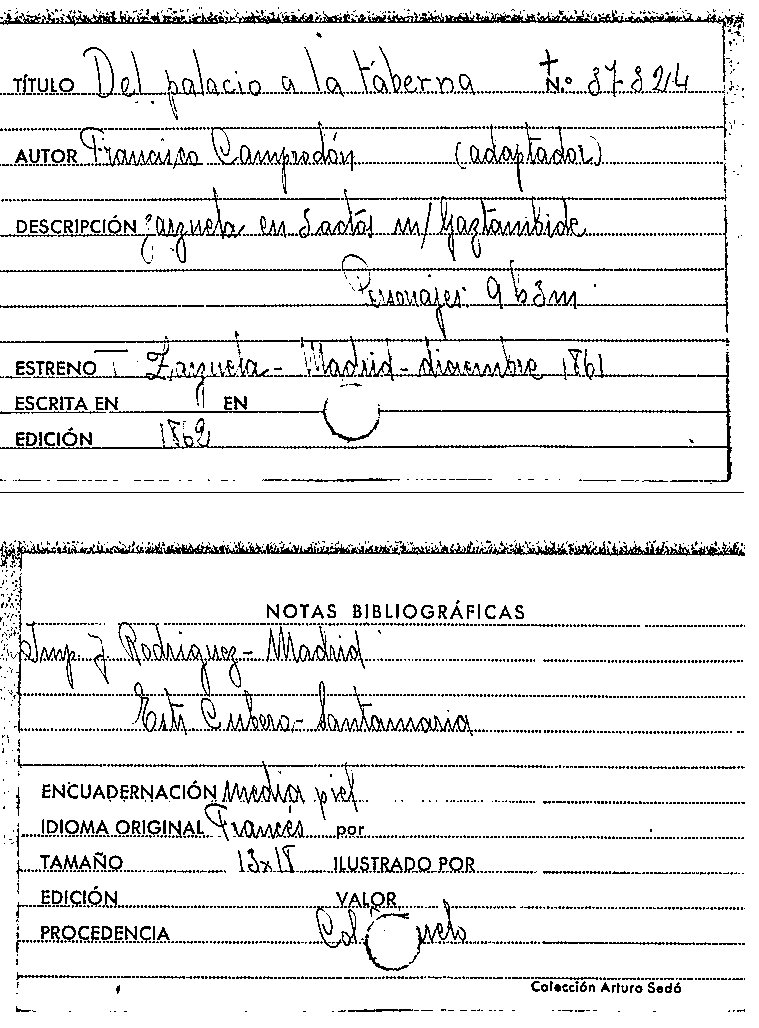 TÍTULO Del palacio a la taberna N.º 37-3214
AUTOR Francisco Camprodón (adaptador)
DESCRIPCIÓN zarzuela en 3 actos m/ Gaztambide
Personajes: 9 h 3 m
ESTRENO T Zarzuela - Madrid - diciembre 1861
ESCRITA EN EN
EDICIÓN 1862
NOTAS BIBLIOGRÁFICAS
Imp J Rodriguez - Madrid
Estr Cubero - Santamaria
ENCUADERNACIÓN media piel
IDIOMA ORIGINAL Francés por
TAMAÑO 13x18 ILUSTRADO POR
EDICIÓN VALOR
PROCEDENCIA Col
Colección Arturo Sedó